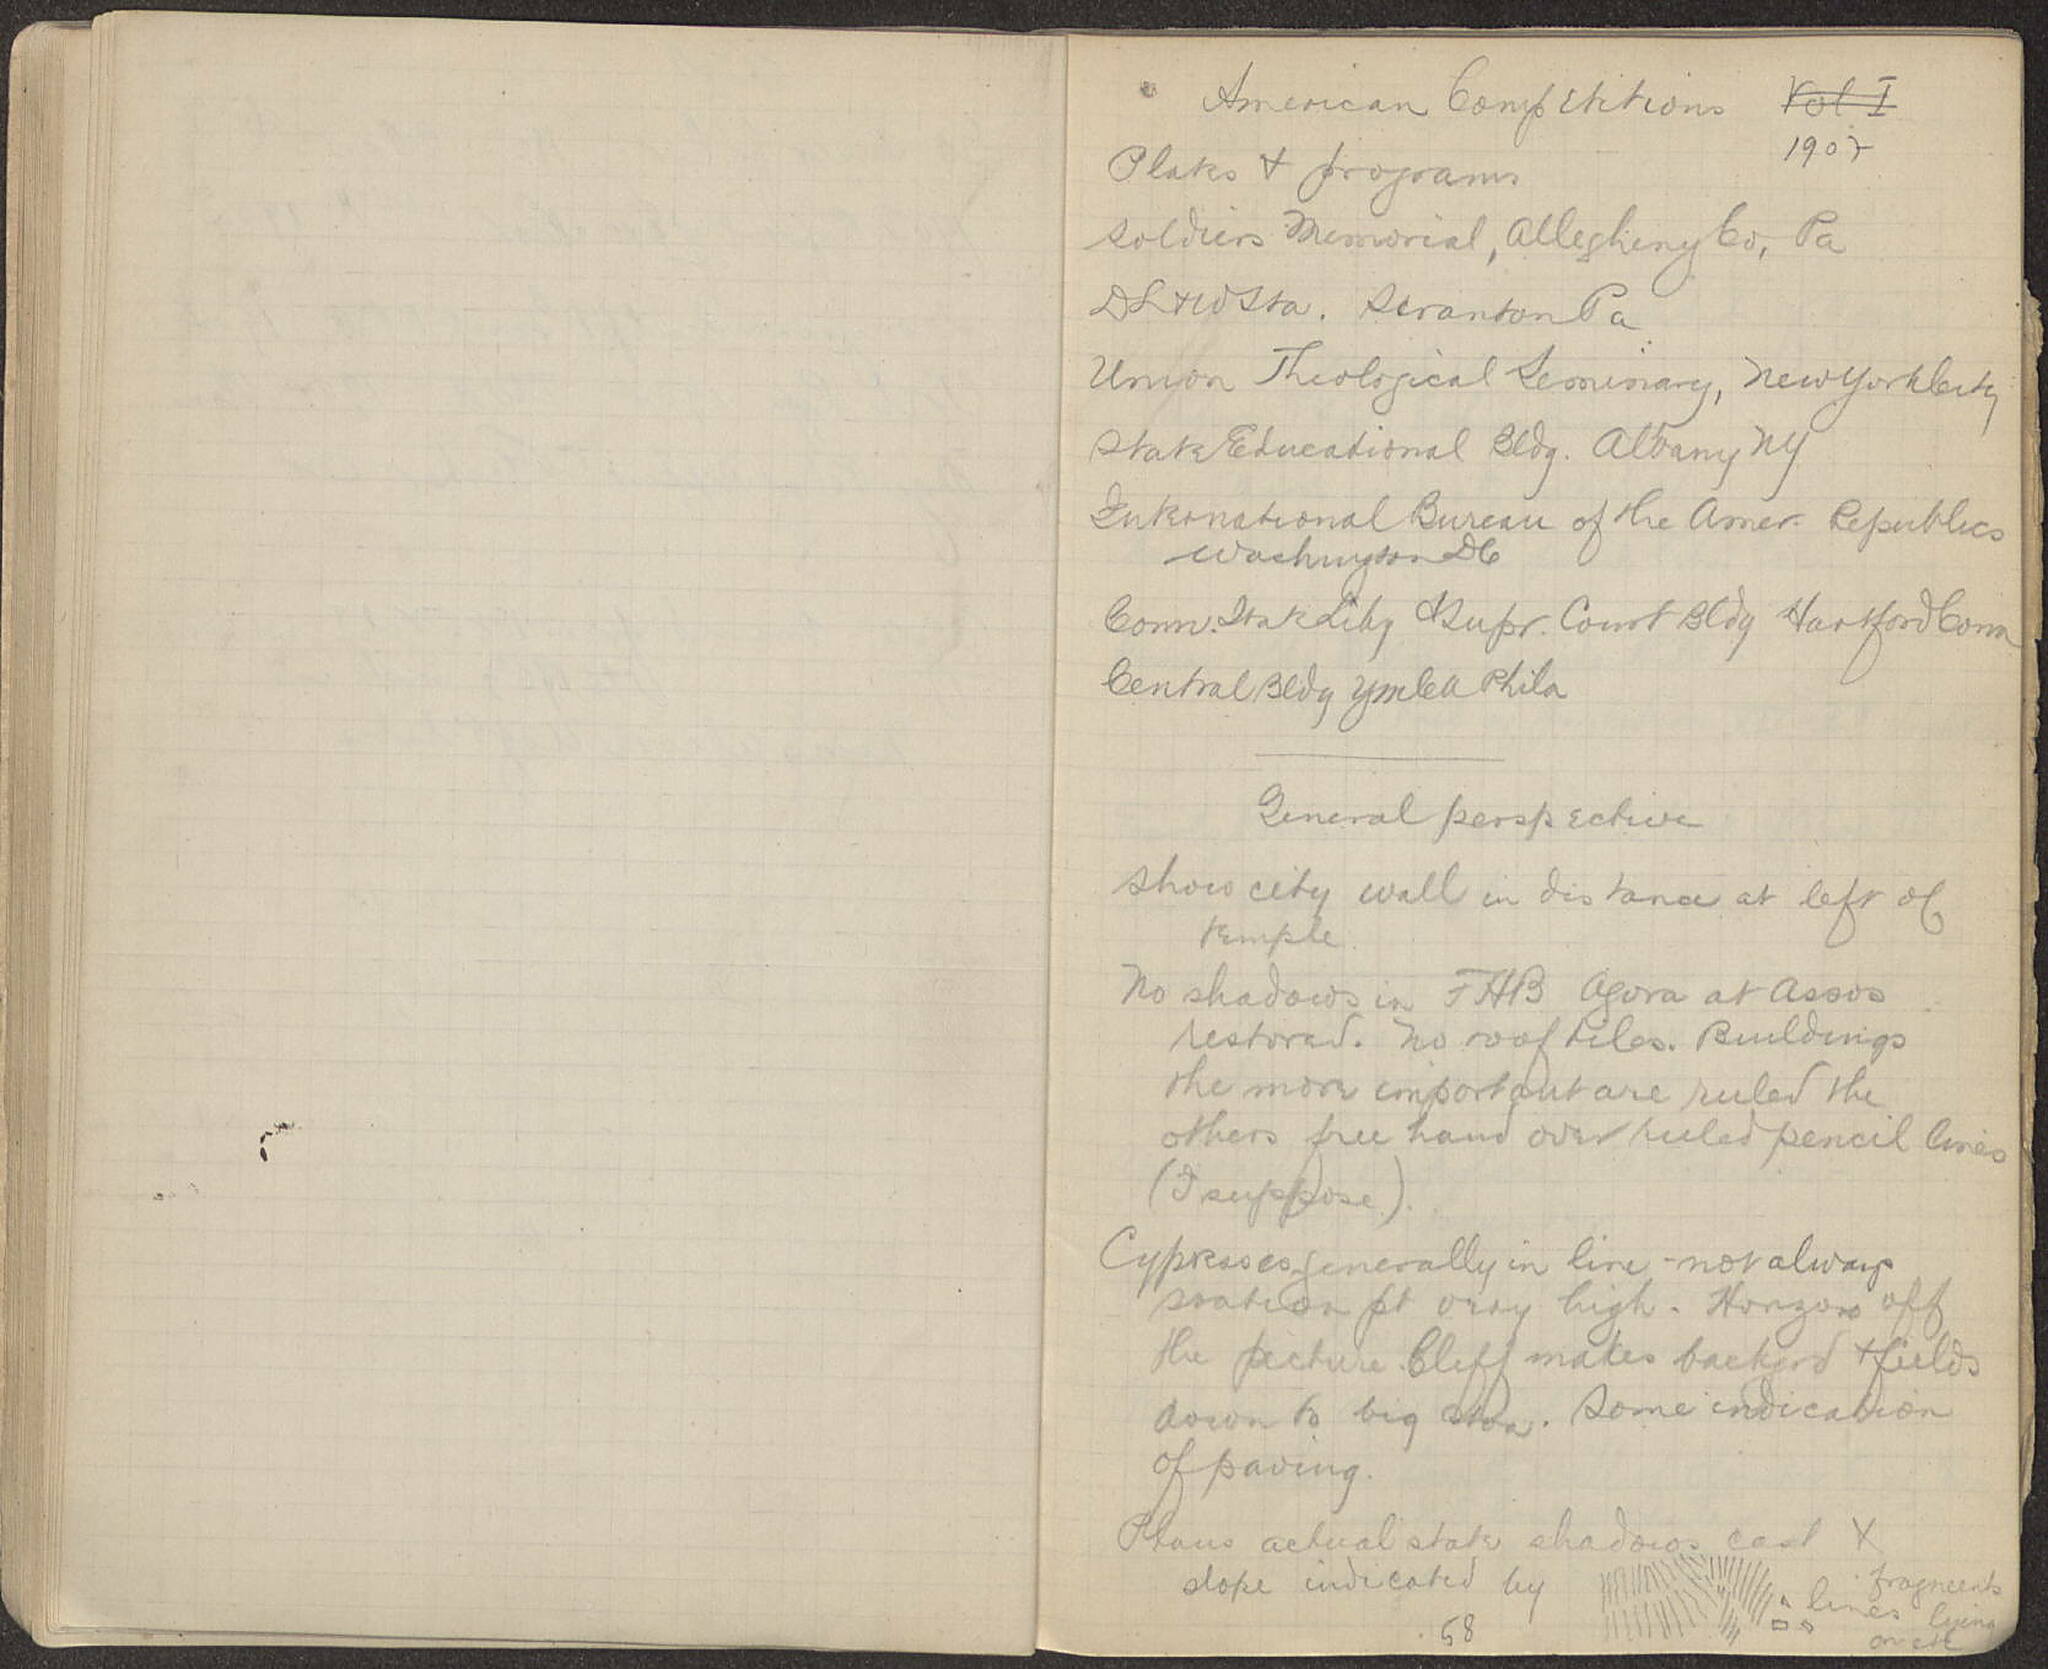 American Competitions Vol I
1907
Plates & programs
Soldiers Memorial, Allegheny Co, Pa
DL&W Sta. Scranton Pa
Union Theological Seminary, New York City
State Educational Bldg. Albany NY
International Bureau of the Amer. Republics
Washington DC
Conn. State Liby & Supr. Court Bldg Hartford Conn
Central Bldg YMCA Phila
General perspective
Show city wall in distance at left of
temple.
No shadows in FHB Agora at Assos
restored. No roof tiles. Buildings
the more important are ruled the
others free hand over ruled pencil lines
(I suppose).
Cypresses generally in line - not always
station pt very high. Horizon off
the picture. Cliff makes backgrd & fields
down to big stoa. Some indication
of paving.
Plans actual state shadows cast X
slope indicated by lines
fragments
lying
58